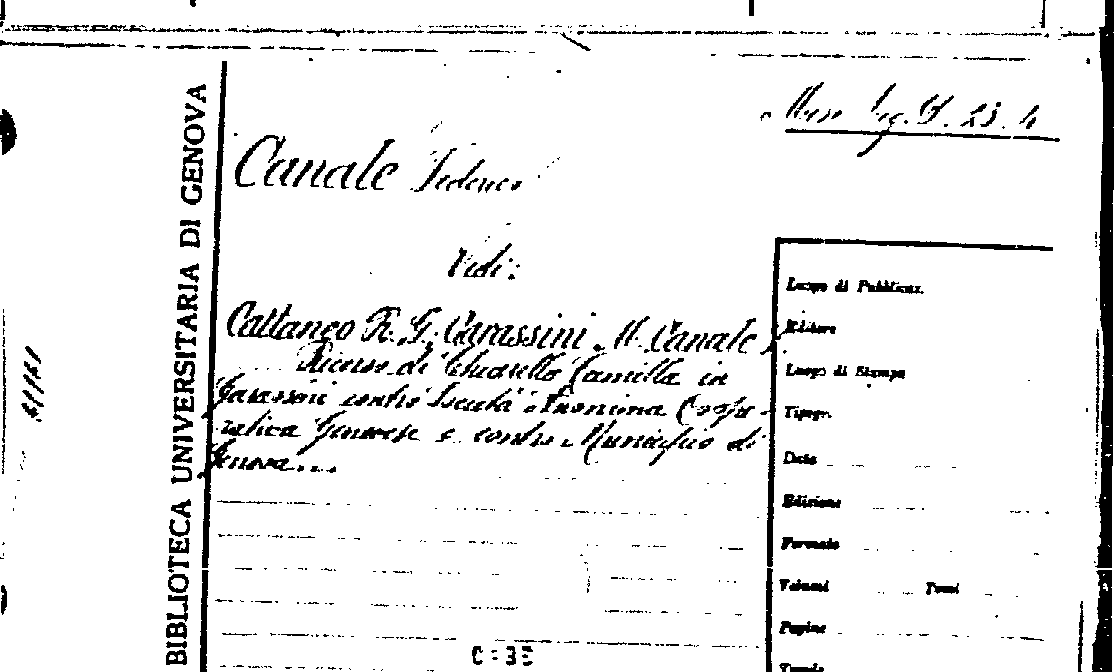 BIBLIOTECA UNIVERSITARIA DI GENOVA
Canale Federico
Vedi:
Cattaneo R. G. Carassini M. Canale
Ricorso di Chiarella Camilla in
Garassini contro Società Anonima Coope-
rativa Genovese e contro Municipio di
Genova...
Luogo di Pubblicaz.
Editore
Luogo di Stampa
Tipogr.
Data
Edizione
Formato
Volumi Tomi
Pagine